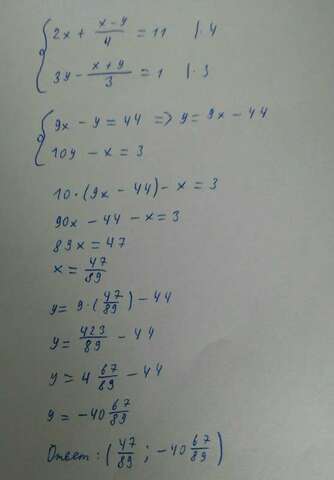 2x + (x-y)/4 = 11 | · 4
3y - (x+y)/3 = 1 | · 3
9x - y = 44 => y = 9x - 44
10y - x = 3
10·(9x - 44) - x = 3
90x - 44 - x = 3
89x = 47
x = 47/89
y = 9·(47/89) - 44
y = 423/89 - 44
y = 4 67/89 - 44
y = -40 67/89
Ответ: (47/89 ; -40 67/89)